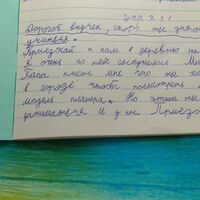 упр 231
Дорогой внучек, скоро ты зако
учиться.
Приезжай к нам в деревню на
Я очень по тебе соскучилась. Ми
Папа писал мне что ты хо
в городе чтобы посмотреть
модель планера. Но этим ты
заниматься и у нас. Приез